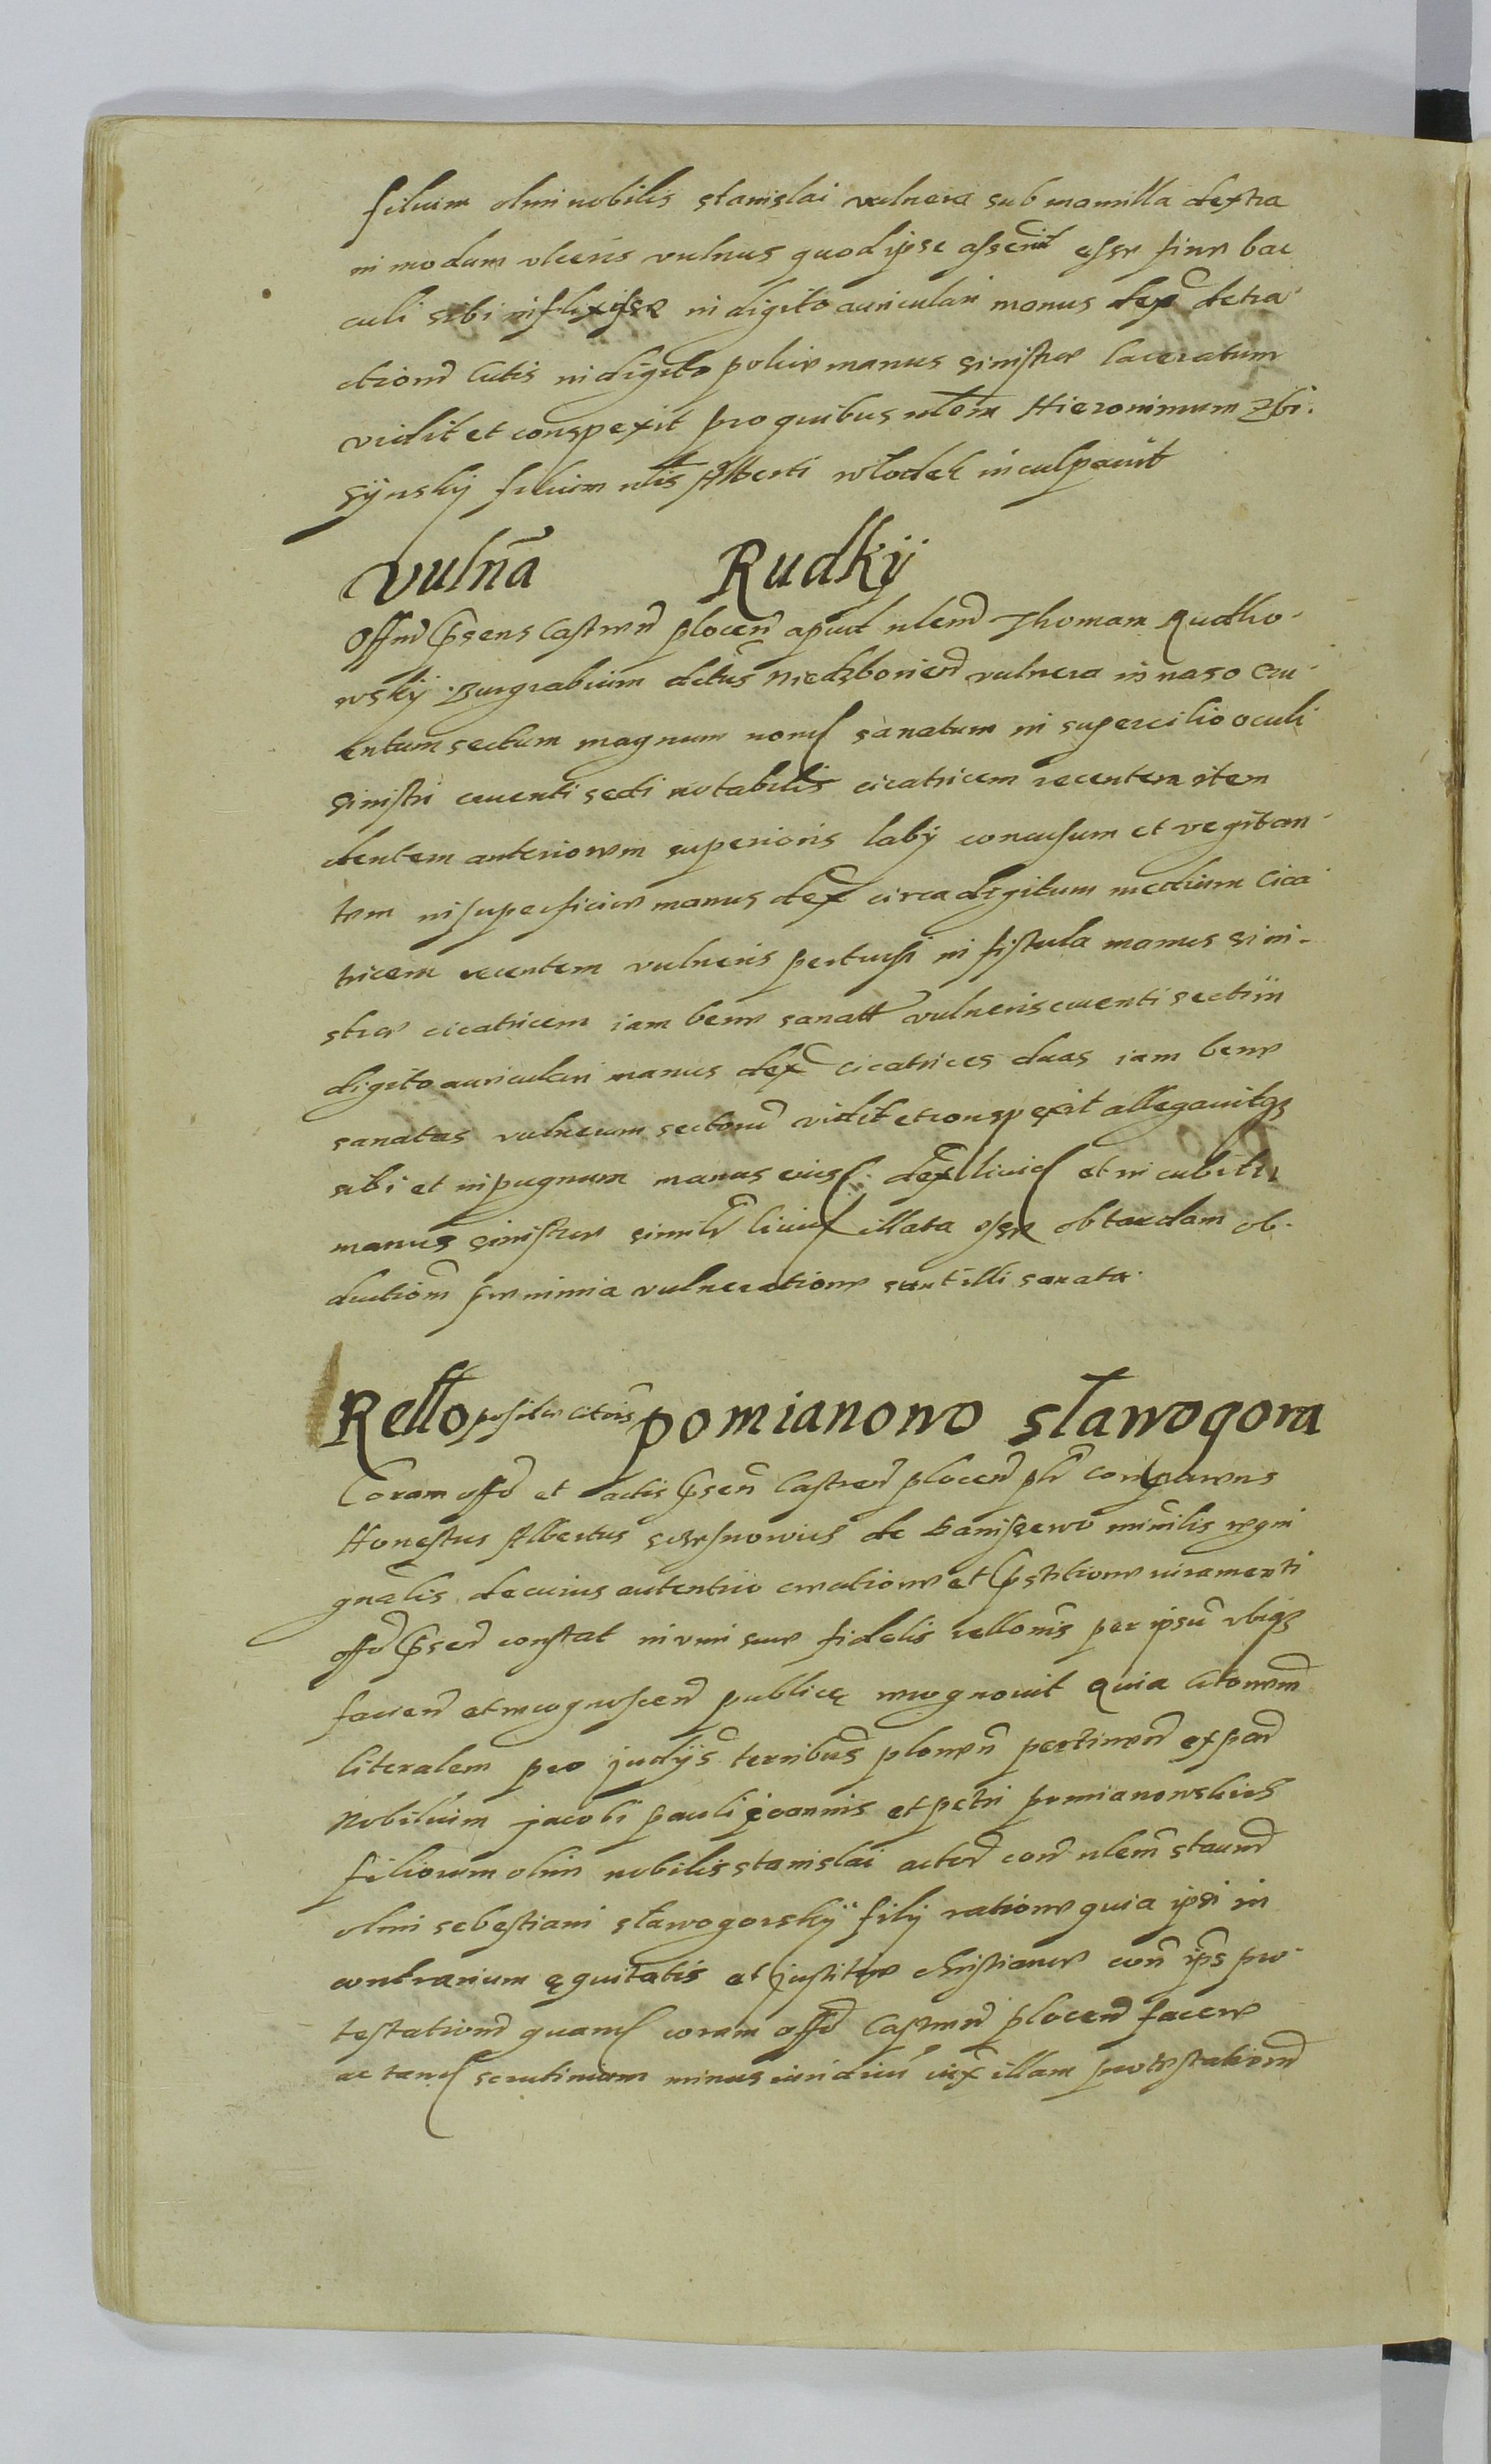 filium olim nobilis stanislai vulnera sub mamilla dextra
in modum vlceris vulnus quod ipse asseruit esse fine bac
culi sibi inflixisse in digito auriculari manus dex detra
ctionem Cutis in digito police manus sinistre laceratum
vidit et conspexit pro quibus nlem Hieronimum Zbi.
sÿnskÿ filium nlis Alberti wlodek inculpauit
vulna Rudkÿ
Offm Psens Castren plocen apud nlem Thomam Rudko
wskÿ Burgrabium Niedzbonien vulnera in naso cru
entum sectum magnum sanatum in supercilio oculi
sinistri cruenti secti notabilis cicatricem recentem item
dentem anteriorem superioris labÿ concusum et vegitan
tem in superficie manus dex circa digitum medium Cica
tricem recentem vulneris pertusi in fistula manus sini-
stre cicatricem iam bene sanatt vulneris cruenti secti in
digito auriculari manus dex cicatrices duas iam bene
sanatas vulnerum sectorum vidit et conspexit allegauitqz
sibi et in pugnum manus eius dex liuid et in cubitu
manus sinistre simili liuid illata esse ob tardam ob-
ductionem nimia vulneratione sunt illi sanata.
Rello posite citois pomianowo slawogora
Coram offo et actis Psen Castren plocen plr comparens
Honestus Albertus de Baniszewo minilis regni
gnalis de cuius autentico creatione et Pstitione iuramenti
offo Psen constat in vim sue fidelis rellonis per ipsu vbiqz
facien et recognoscen publice recognouit Quia Citonem
literalem pro judÿs terribus plonen pertinen ex par
Nobilium jacobi pauli joannis et petri pomianowskich
filiorum olim nobilis stanislai actor con nlem
olim sebestiani slawogorskÿ filÿ ratione quia ipsi in
contrarium equitatis et justitie christiane con ips pro
testationem quand coram offo Castren plocen facere
ac tand scrutinium minus iuridicu iux illam protestationem